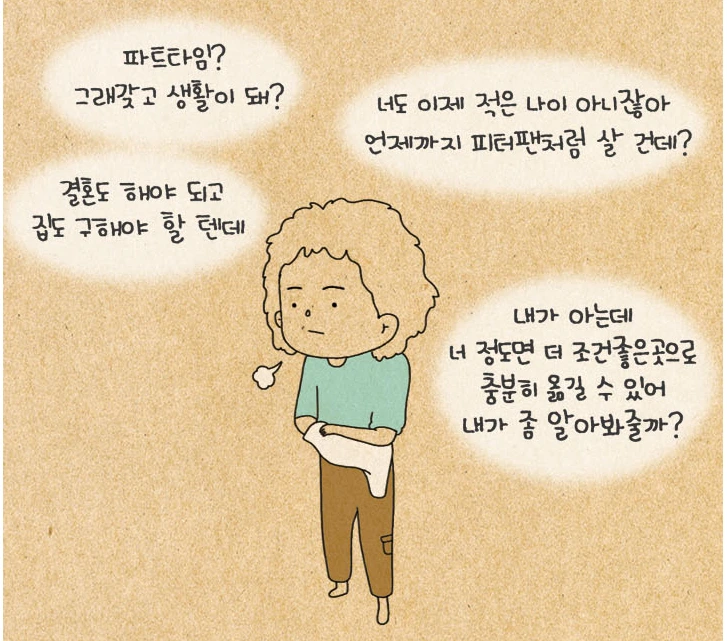 파트타임?
그래갖고 생활이 돼?
너도 이제 적은 나이 아니잖아
언제까지 피터팬처럼 살 건데?
결혼도 해야 되고
집도 구해야 할 텐데
내가 아는데
너 정도면 더 조건좋은곳으로
충분히 옮길 수 있어
내가 좀 알아봐줄까?